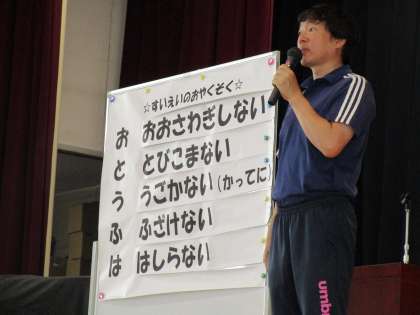 ☆すいえいのおやくそく☆
お おおさわぎしない
と とびこまない
う うごかない(かってに)
ふ ふざけない
は はしらない
umb